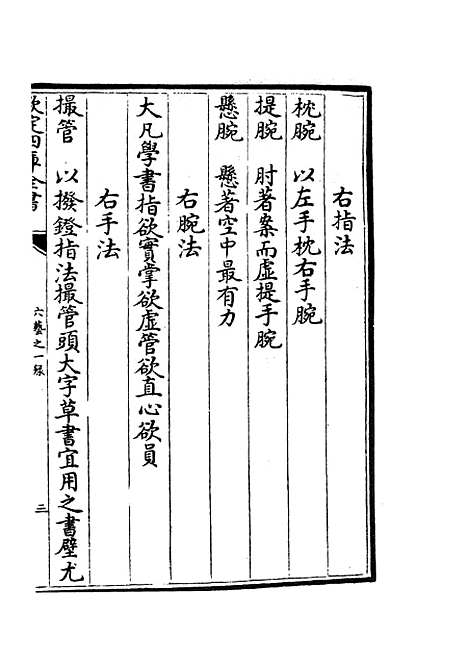 右指法
枕腕　以左手枕右手腕
提腕　肘著案而虚提手腕
懸腕　懸著空中最有力
右腕法
大凡學書指欲實掌欲虚管欲直心欲員
右手法
撮管　以撥鐙指法撮管頭大字草書宜用之書壁尤
欽定四庫全書
六藝之一録
三